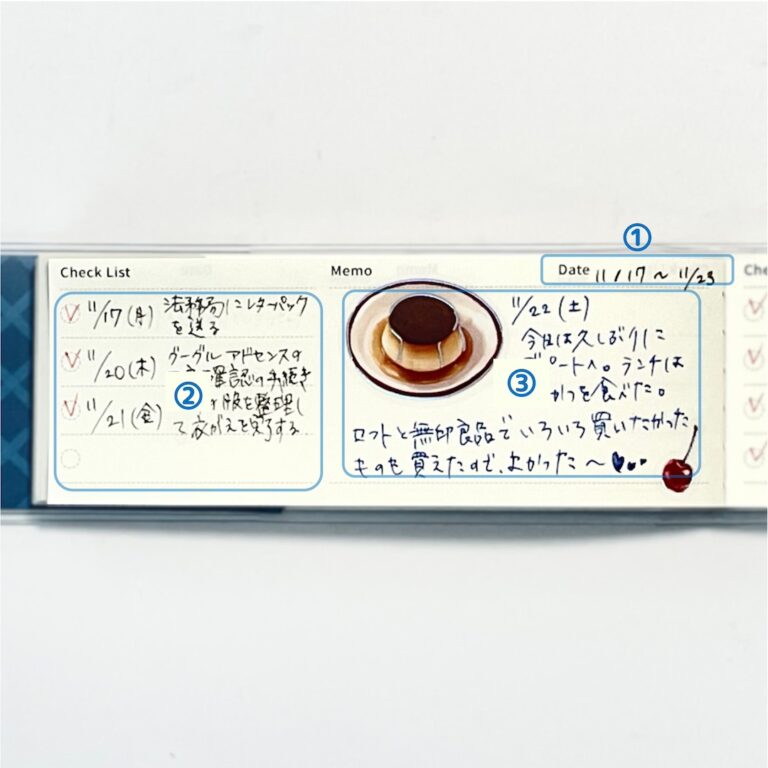 ①
Check List
Memo
Date 11/17～11/23
Che
11/17(月) 法務局にレターパック
を送る
11/20(木) グーグルアドセンスの
確認の手続き
11/21(金) 服を整理し
て衣がえを完了する
②
11/22(土)
今日は久しぶりに
デパートへ。ランチは
③
かつを食べた。
ロフトと無印良品でいろいろ買いたかった
ものも買えたので、よかった～